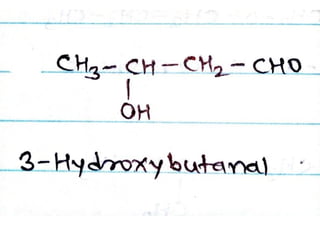 CH₃-CH-CH₂-CHO
|
OH
3-Hydroxybutanal